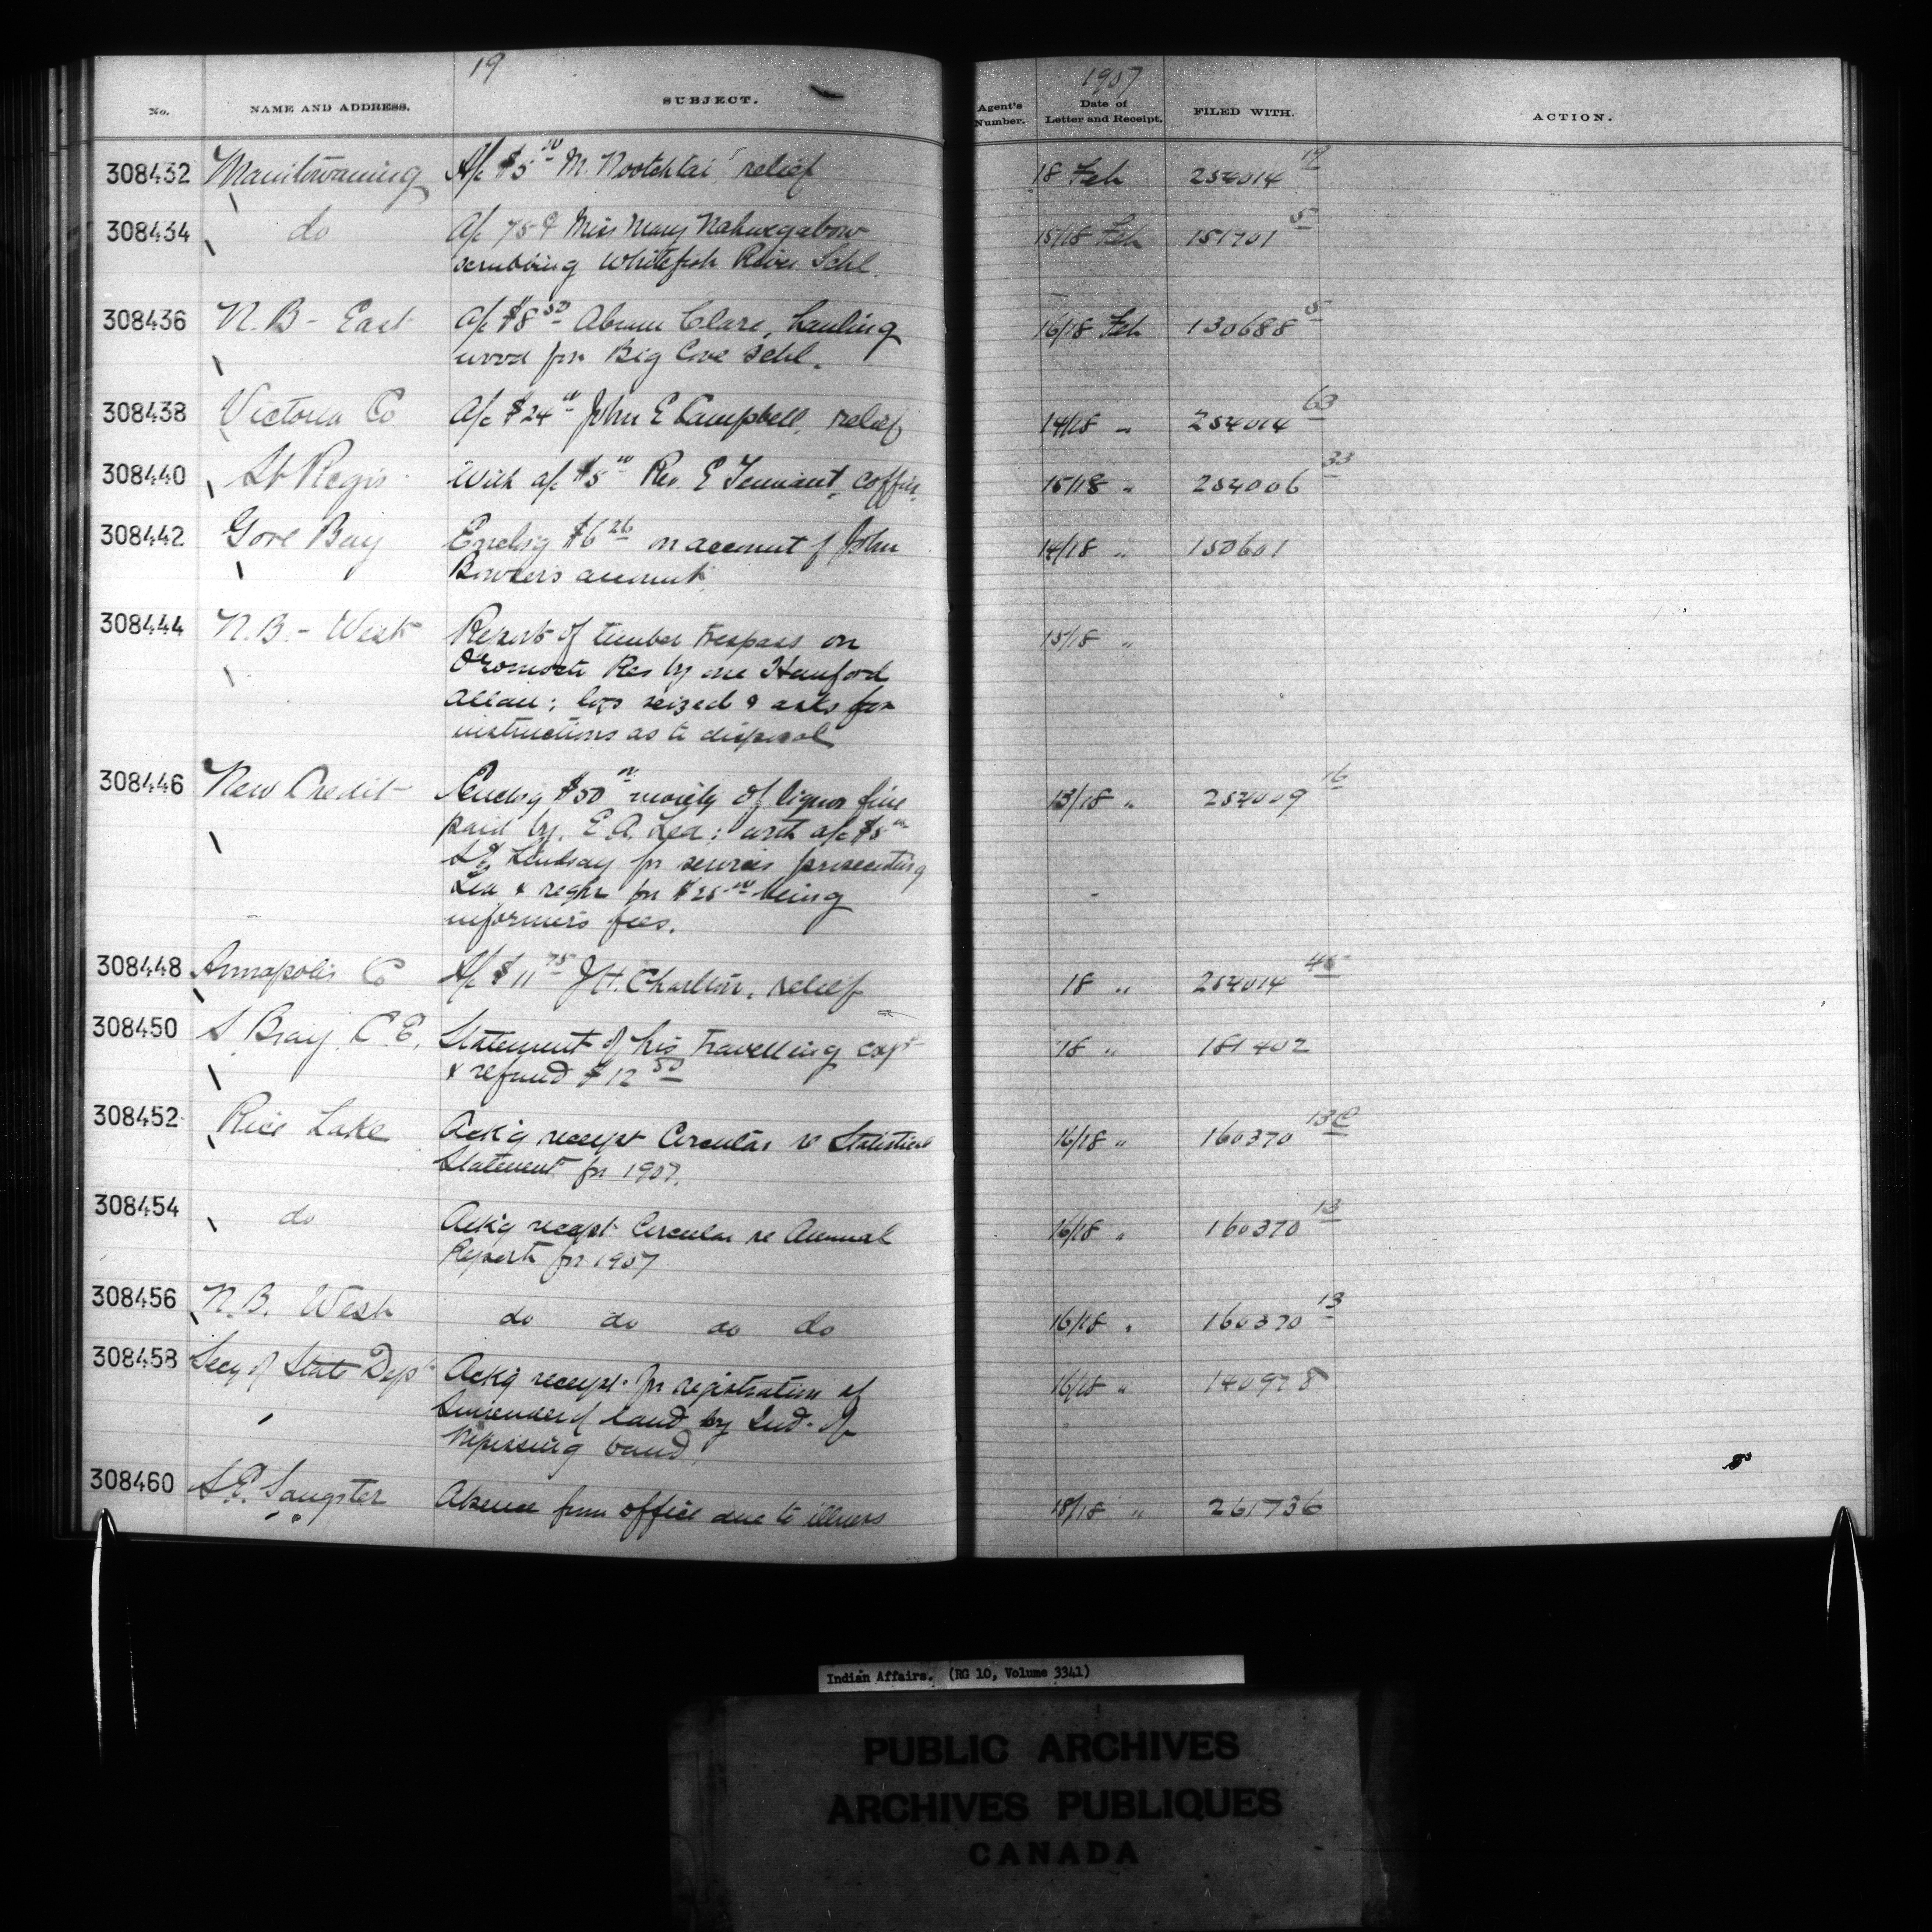 19
No. NAME AND ADDRESS. SUBJECT.
1907
Agent's Number. Date of Letter and Receipt. FILED WITH. ACTION.
308432 Manitowaning A/c $5 00 M. Nootchtai relief 18 Feb 254014 19
308434 do A/c 75 ¢ Miss Mary Nahwegabow 15/18 Feb 151701 5
scrubbing Whitefish River Schl.
308436 N.B - East A/c $8 50 Abram Clare, hauling 16/18 Feb 130688 5
wood for Big Cove Schl.
308438 Victoria Co A/c $24 00 John E Campbell, relief 14/18 " 254014 63
308440 St Regis With a/c $5 00 Rev. E Tennant, coffin 15/18 " 254006 33
308442 Gore Bay Enclsg $6 26 on account of John 14/18 " 150601
Bowser's account.
308444 N.B. - West Report of timber trespass on 15/18 "
Oromocto Res by one Hanford
Allan; logs seized & asks for
instructions as to disposal
308446 New Credit Enclsg $50 00 moiety of liquor fine 13/18 " 254009 16
paid by E. A. Lea; with a/c $5 00
Lindsay for services prosecuting
Lea & reqn for $25 00 being
informer's fees.
308448 Annapolis Co A/c $11 75 J H. Charlton, relief 18 " 254014 45
308450 S Bray C.E. Statement of his travelling exps 18 " 181402
& refund $12 50
308452 Rice Lake Ack'g receipt Circular re Statistical 16/18 " 160370 13
Statement for 1907.
308454 do Ack'g receipt Circular re Annual 16/18 " 160370 13
Report for 1907
308456 N.B. West do do do do 16/18 " 160370 13
308458 Secy of State Dept Ack'g receipt for registration of 16/18 " 140978
Surrender of land by Ind. of
Nipissing band
308460 Sangster Absence from office due to illness 18/18 " 261736
Indian Affairs. (RG 10, Volume 3341)
PUBLIC ARCHIVES
ARCHIVES PUBLIQUES
CANADA